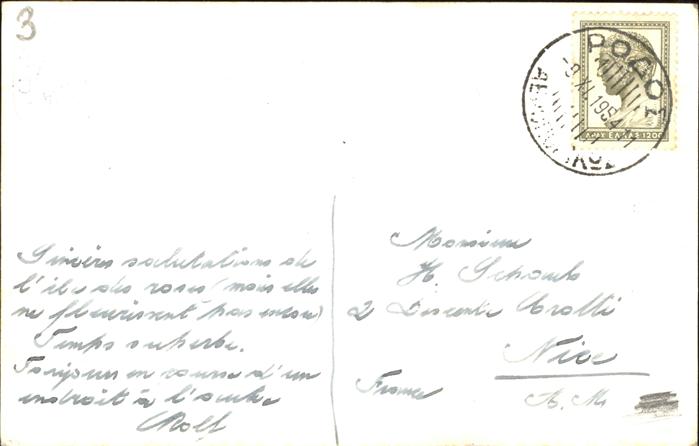 3
ΡΟΔΟΣ
9 XI 1954
ΔΡΑΧ ΕΛΛΑΣ 1200
Sincères salutations de
l'île des roses (mais elles
ne fleurissent pas encore)
Temps superbe.
Toujours en course d'un
endroit à l'autre
Rolf
Monsieur
H. Schaub
2 Descente Crotti
Nice
France
A. M.